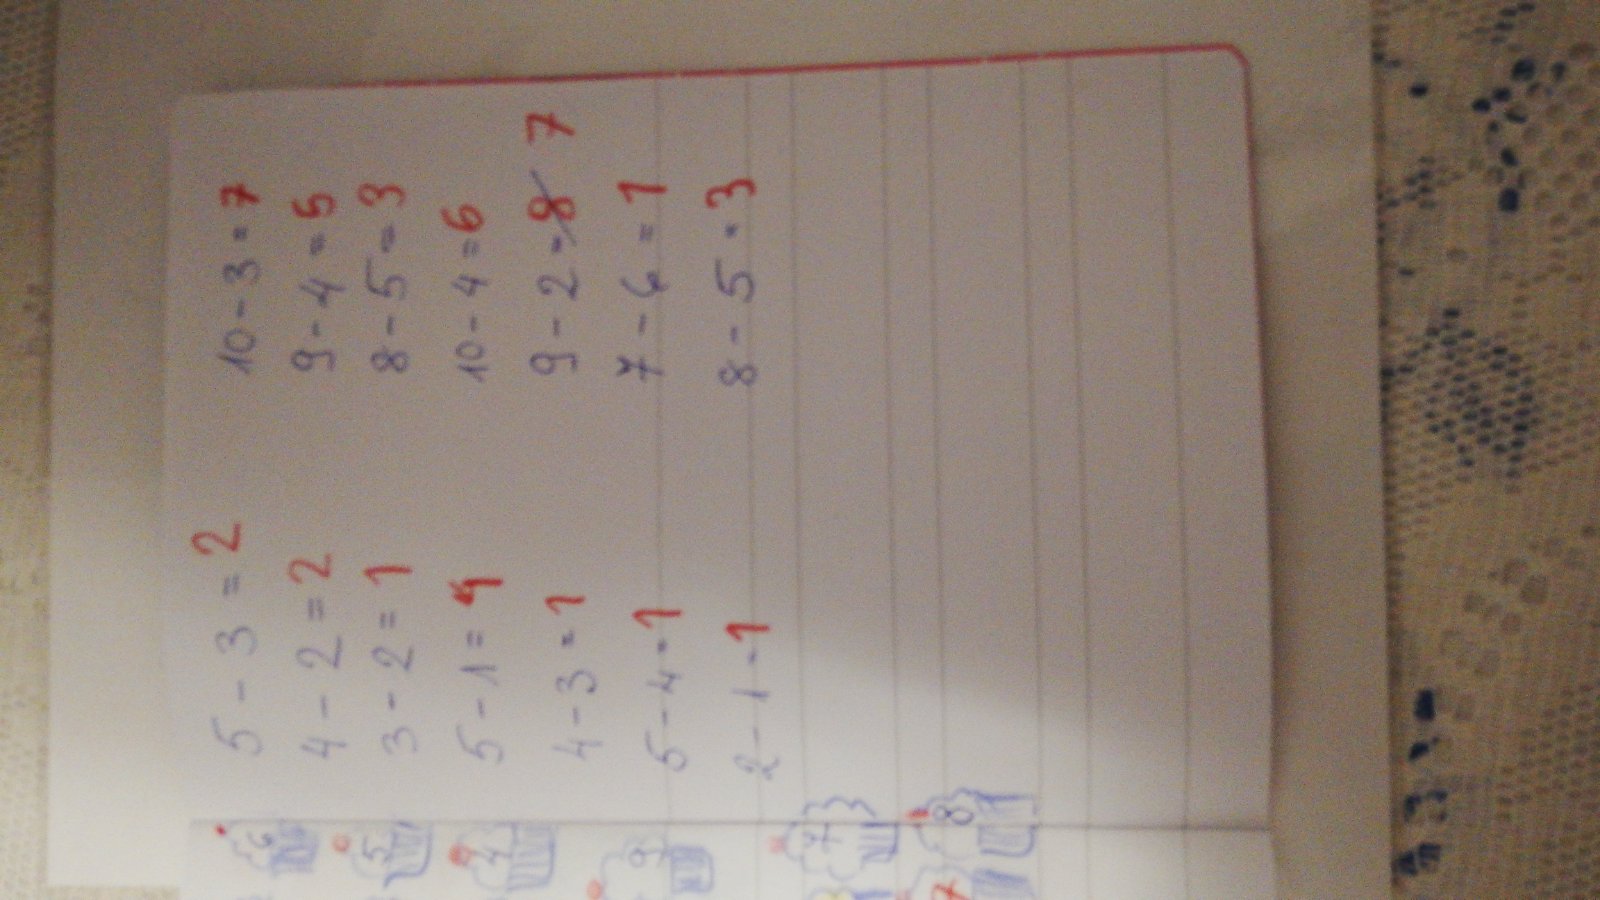 5 - 3 = 2
4 - 2 = 2
3 - 2 = 1
5 - 1 = 4
4 - 3 = 1
5 - 4 = 1
2 - 1 = 1
10 - 3 = 7
9 - 4 = 5
8 - 5 = 3
10 - 4 = 6
9 - 2 = 8 7
7 - 6 = 1
8 - 5 = 3
6
5
4
9
7
8
7